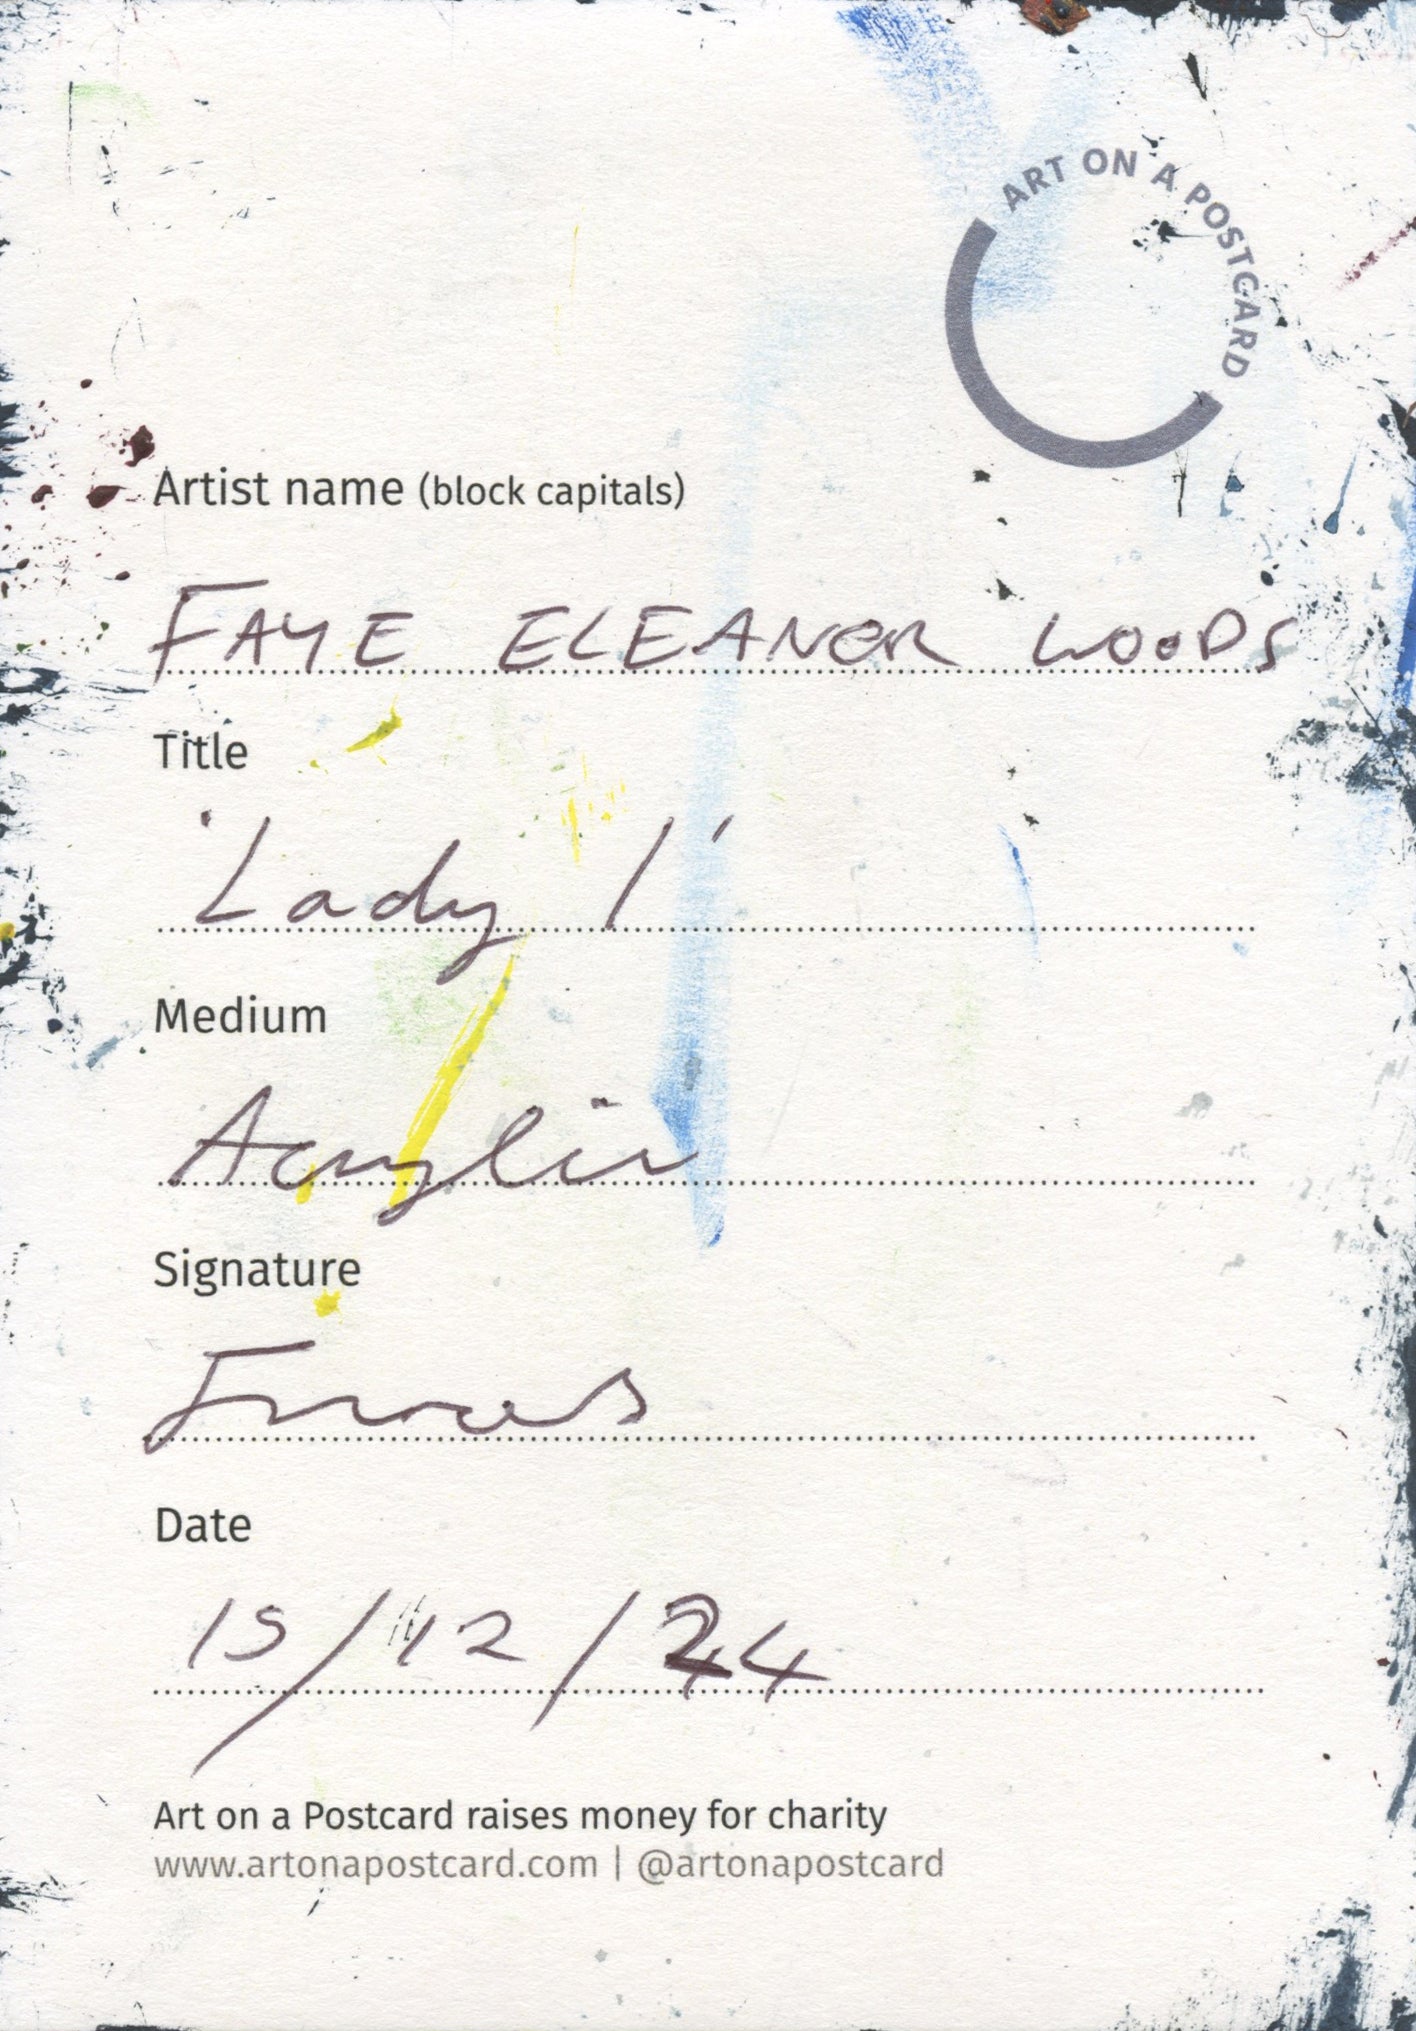 ART ON A POSTCARD
Artist name (block capitals)
FAYE ELEANOR WOODS
Title
'Lady 1'
Medium
Acrylic
Signature
Date
15/12/24
Art on a Postcard raises money for charity
www.artonapostcard.com | @artonapostcard